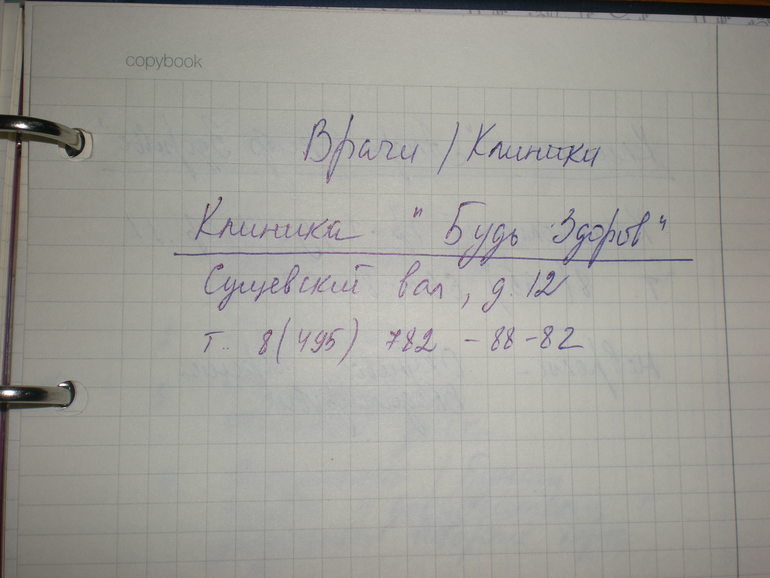 copybook
Врачи / Клиники
Клиника "Будь Здоров"
Сущевский вал, д. 12
т. 8(495) 782-88-82